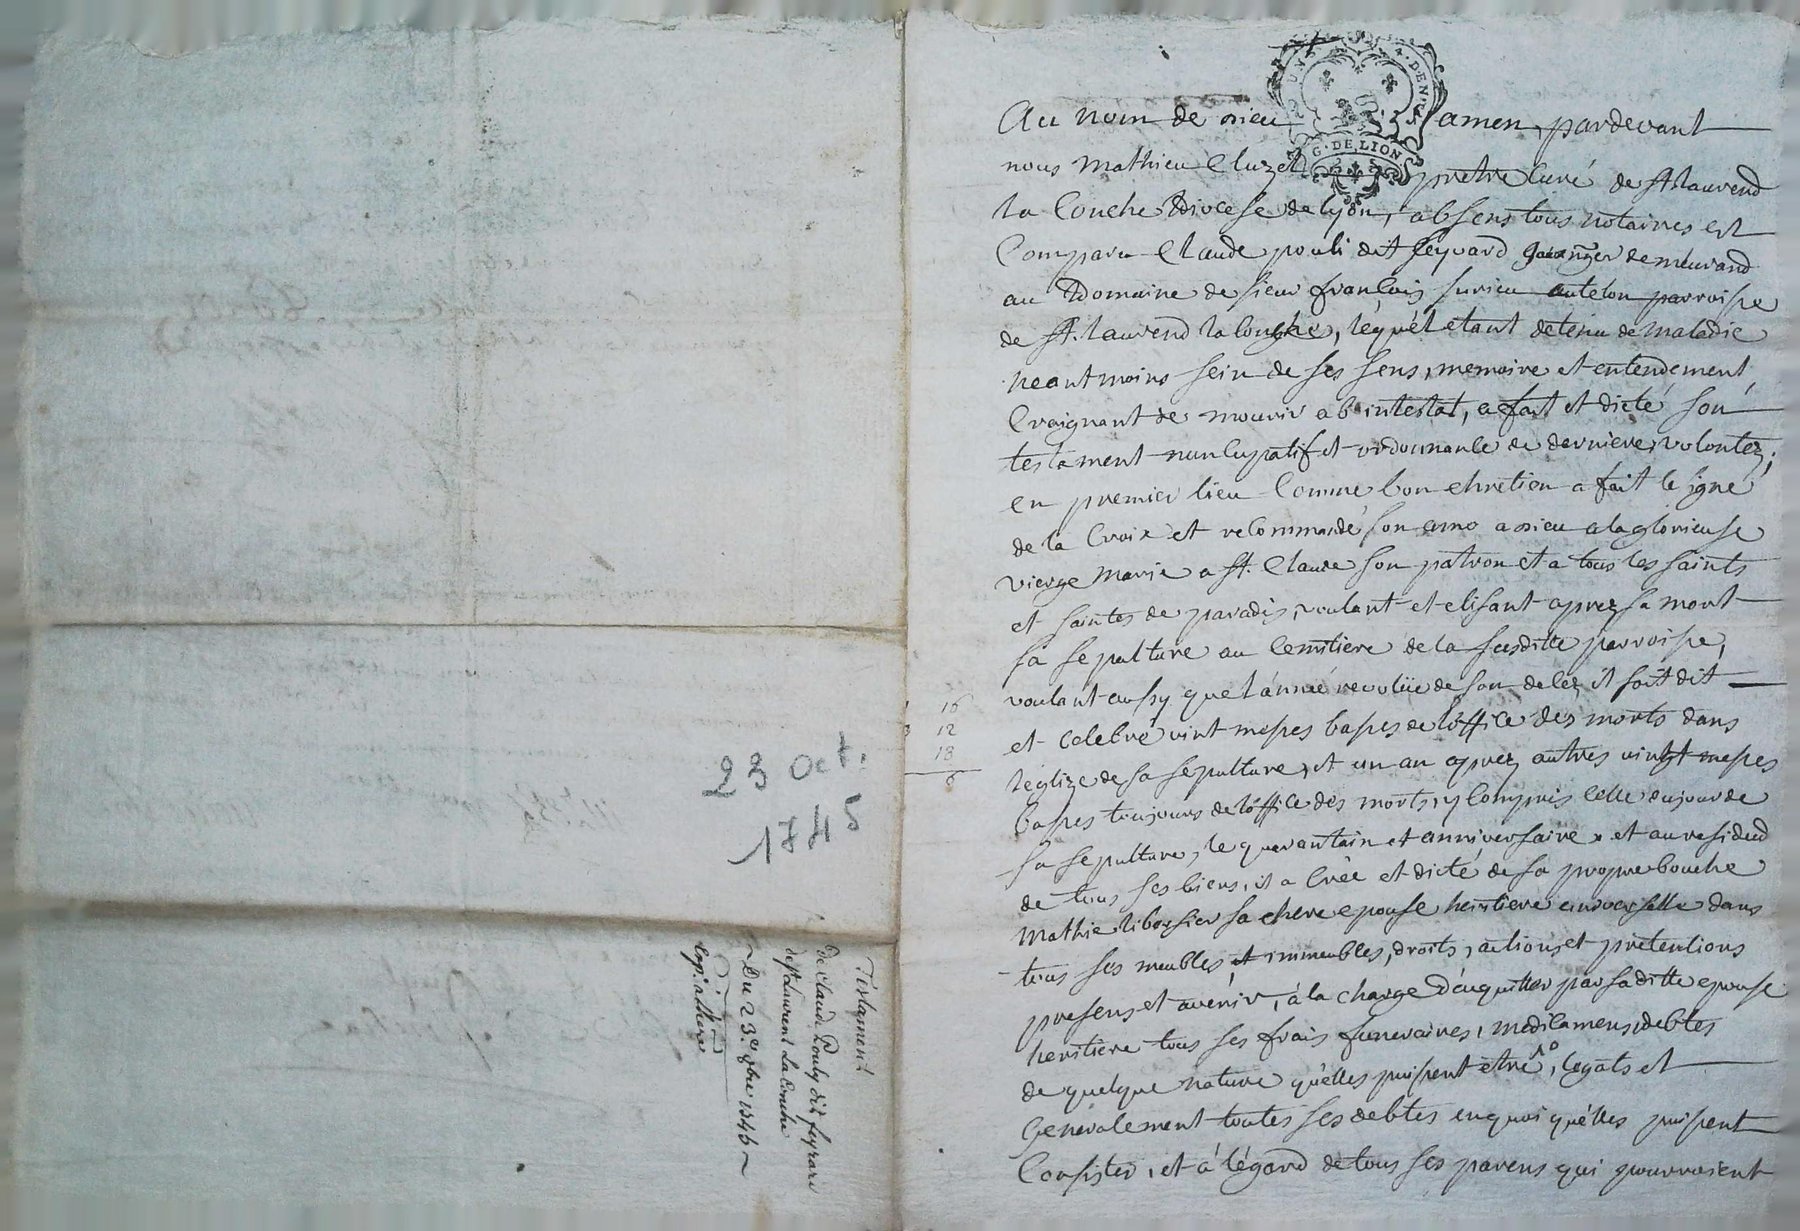 23 oct.
1745
Testament
de Claude Pouly dit feyvard
de st Laurent La Conche
Du 23e 8bre 1745
16
12
18
6
G. DE LION
Au nom de dieu amen, pardevant
nous Mathieu Cluzel pretre Curé de St laurend
la Conche Diocese de lyon, absens tous notaires est
Comparu Claude pouli dit feyvard granger demeurand
au Domaine de sieur francois parroisse
de St. laurend la Conche, lequél etant detenu de maladie
neantmoins sein de ses sens, memoire et entendement
Craignant de mourir ab intestat, a fait et dicté son
testament nuncupatif et ordonnance de derniere volontéz;
en premier lieu Comme bon chretien a fait le signe
de la Croix et recommandé son ame a dieu a la glorieuse
vierge Marie a St. Claude son patron et a tous les saints
et saintes de paradis, voulant et elisant aprez sa mort
sa sepulture au Cemitiere de la susditte parroisse,
voulant aussy que l'année revolüe de son decez il soit dit
et celebré vint messes basses de l'office des morts dans
leglize de sa sepulture, et un an aprez autres vingt messes
basses toujours de l'office des morts, y Compris Celle du jour de
sa sepulture, le quarantain et anniversaire, et au residud
de tous ses biens, il a Créé et dicté de sa propre bouche
Mathie sa chere epouse heritiere universelle dans
tous ses meubles et immeubles, droits, actions et pretentions
presens et avenir, á la charge d'acquitter par sa ditte epouse
heritiere tous ses frais funeraires, medicamens, debtes
de quelque nature qu'elles puissent étre, legats et
Generalement toutes ses debtes en quoi qu'elles puissent
Consister, et á l'égard de tous ses parens qui pourroient